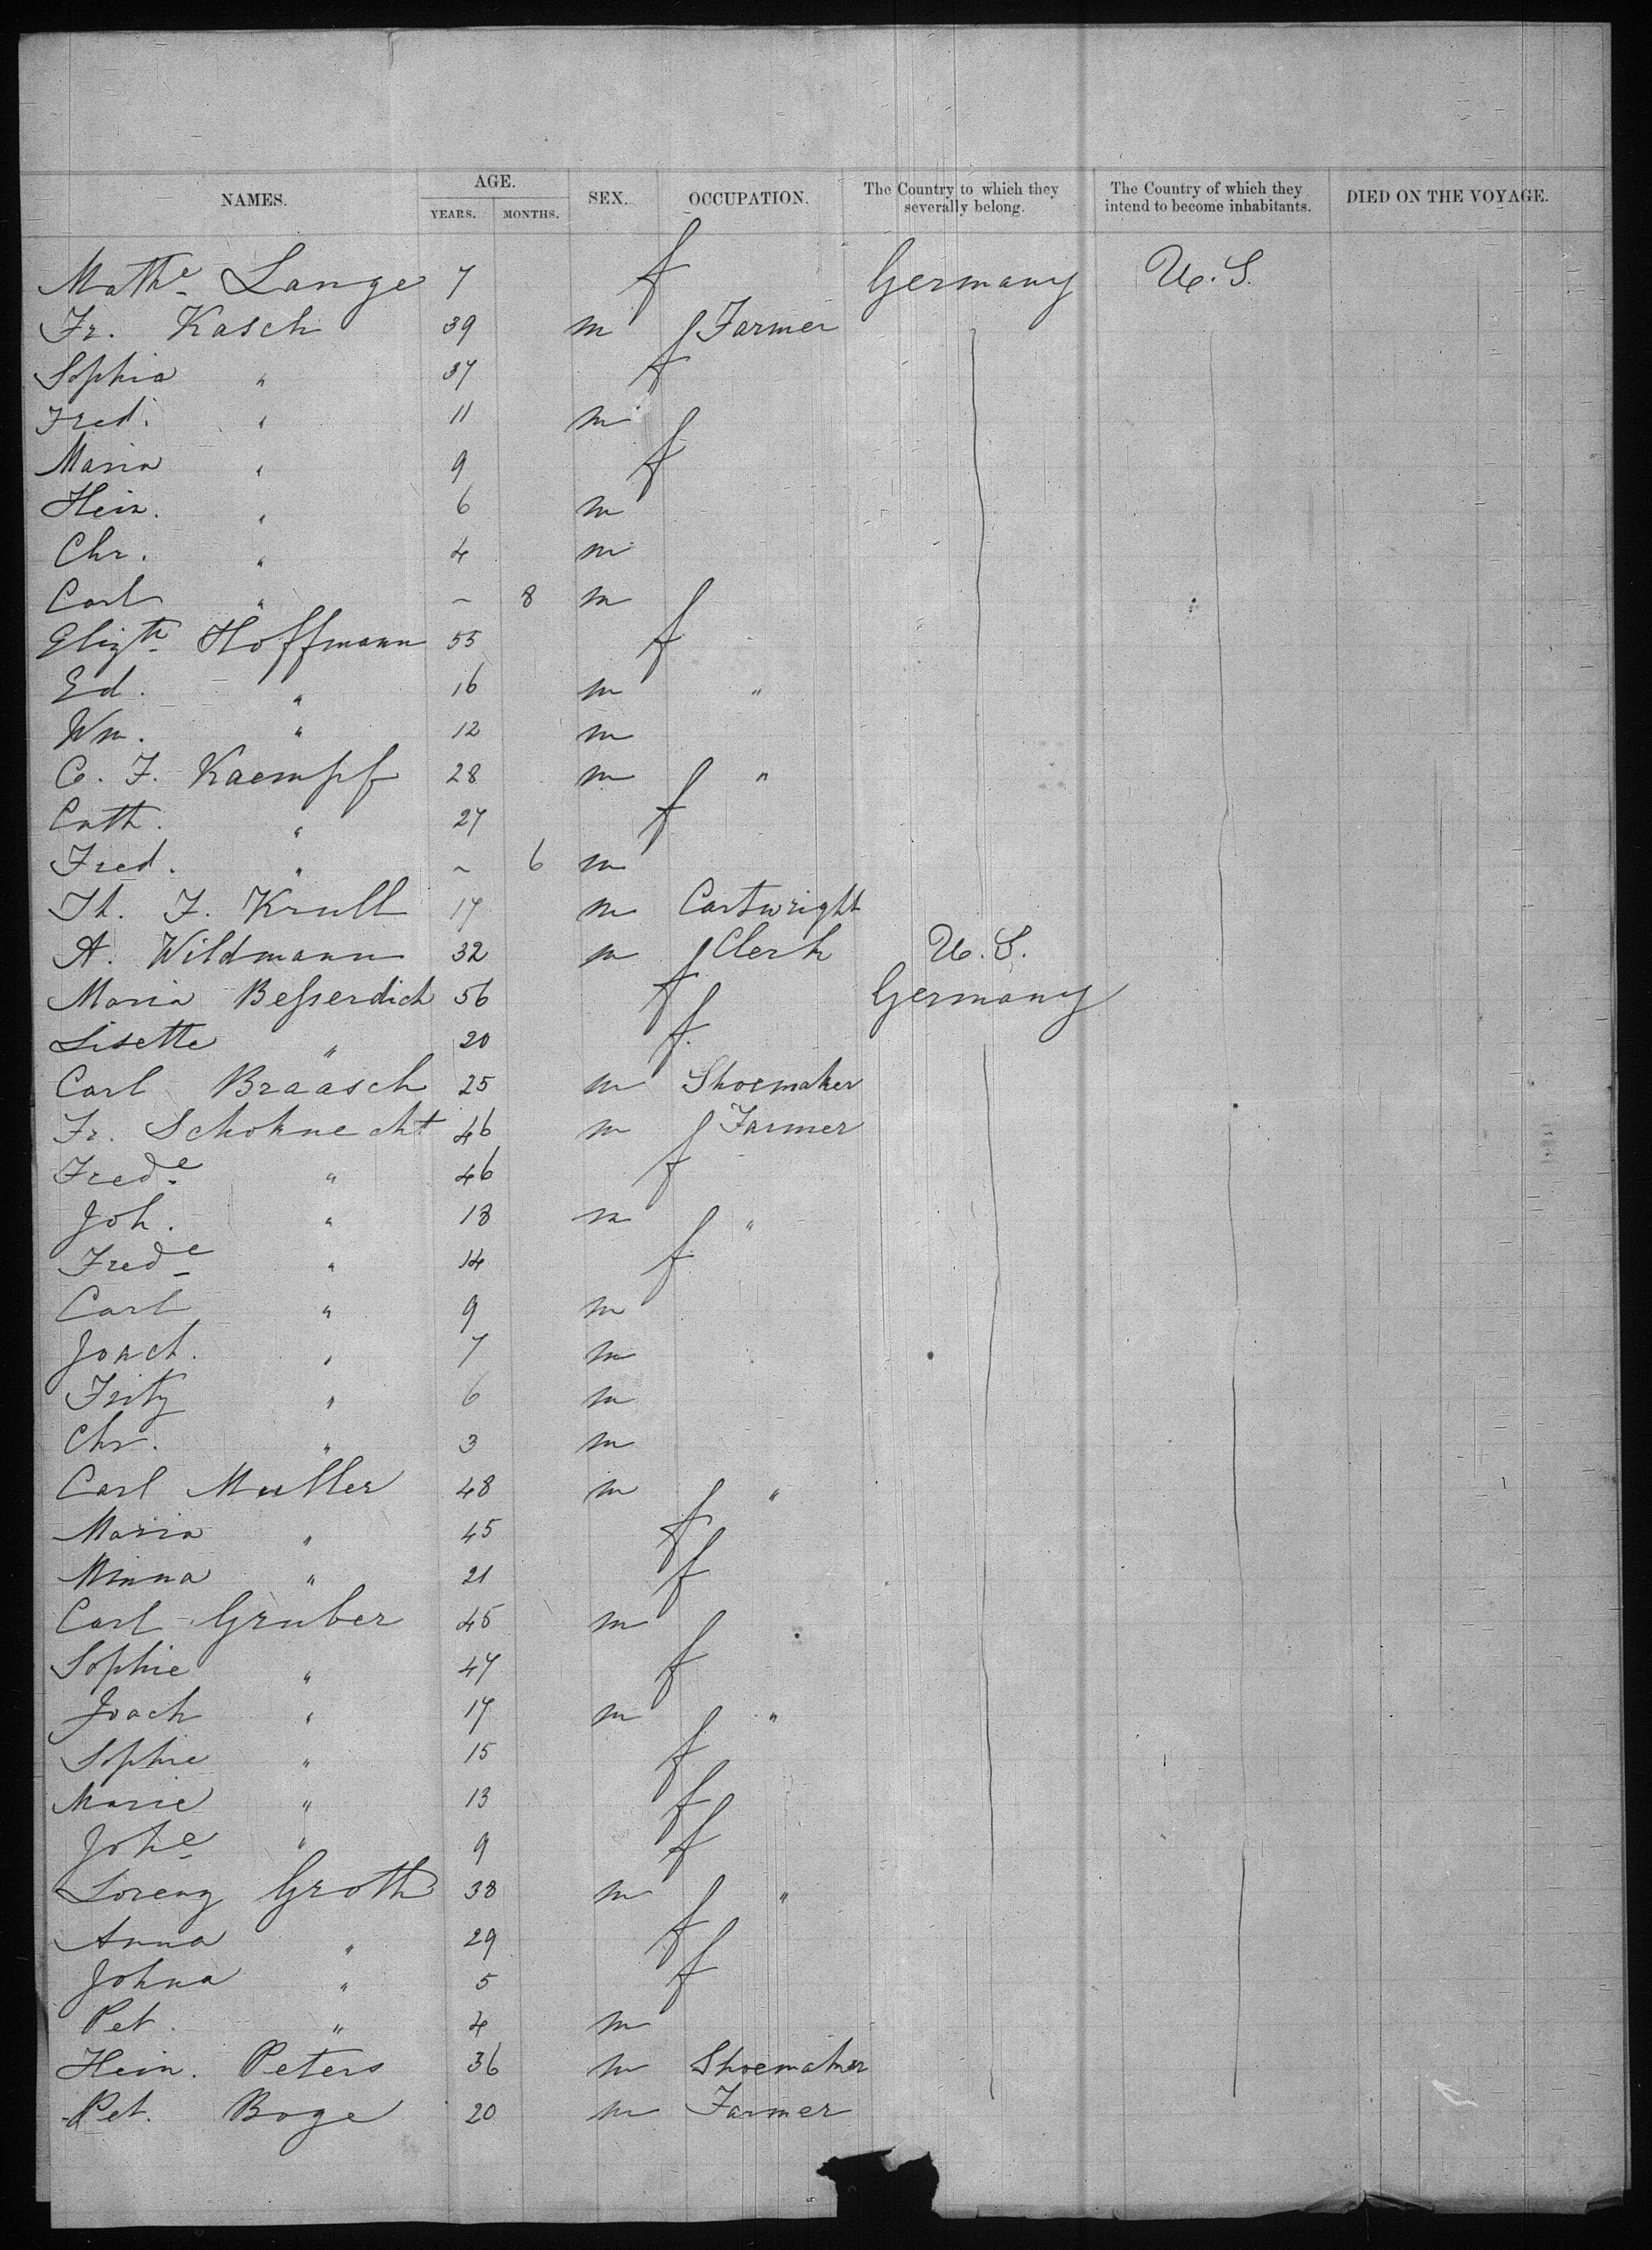 NAMES. AGE. SEX. OCCUPATION. The Country to which they severally belong. The Country of which they intend to become inhabitants. DIED ON THE VOYAGE.
YEARS. MONTHS.
Mathe Lange 7 f Germany U.S.
Fr. Kasch 39 m Farmer
Sophia " 37 f
Fred. " 11 m
Maria " 9 f
Hein. " 6 m
Chr. " 4 m
Carl " ~ 8 m
Elizth Hoffmann 55 f
Ed. " 16 m "
Wm. " 12 m
C. F. Kaempf 28 m "
Cath. " 27 f
Fred. " ~ 6 m
Th. F. Krull 17 m Cartwright
A. Wildmann 32 m Clerk U.S.
Maria Besserdich 56 f Germany
Lisette " 20 f
Carl Braasch 25 m Shoemaker
Fr. Schoknecht 46 m Farmer
Frede " 46 f
Joh. " 18 m "
Frede " 14 f
Carl " 9 m
Joach. " 7 m
Fritz " 6 m
Chr. " 3 m
Carl Muller 48 m "
Maria " 45 f
Minna " 21 f
Carl Gruber 45 m "
Sophie " 47 f
Joach " 17 m "
Sophie " 15 f
Marie " 13 f
Johe " 9 f
Lorenz Groth 38 m "
Anna " 29 f
Johna " 5 f
Pet. " 4 m
Hein. Peters 36 m Shoemaker
Pet. Boge 20 m Farmer